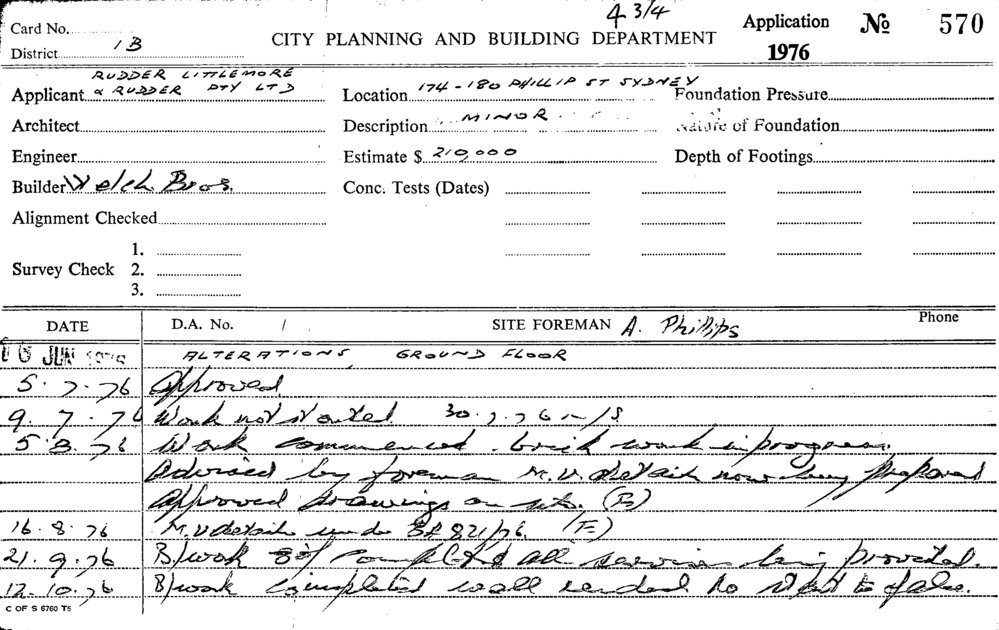 4 3/4
Card No. Application № 570
District 1B CITY PLANNING AND BUILDING DEPARTMENT 1976
RUDDER LITTLEMORE
Applicant & RUDDER PTY LTD Location 174-180 PHILLIP ST SYDNEY Foundation Pressure
Architect Description MINOR Nature of Foundation
Engineer Estimate $ 210,000 Depth of Footings
Builder Welch Bros. Conc. Tests (Dates)
Alignment Checked
1.
Survey Check 2.
3.
DATE D.A. No. / SITE FOREMAN A. Phillips Phone
JUN ALTERATIONS, GROUND FLOOR
5.7.76 Approved.
9.7.76 Work not started. 30.7.76
5.8.76 Work commenced. brick work in progress.
Advised by foreman M.V. details now being prepared
approved drawings on site. (F)
16.8.76 M.V details under 821/76. (F)
21.9.76 B/work 80% completed all services being provided.
12.10.76 B/work completed wall rendered to start to
C OF S 6760 T5